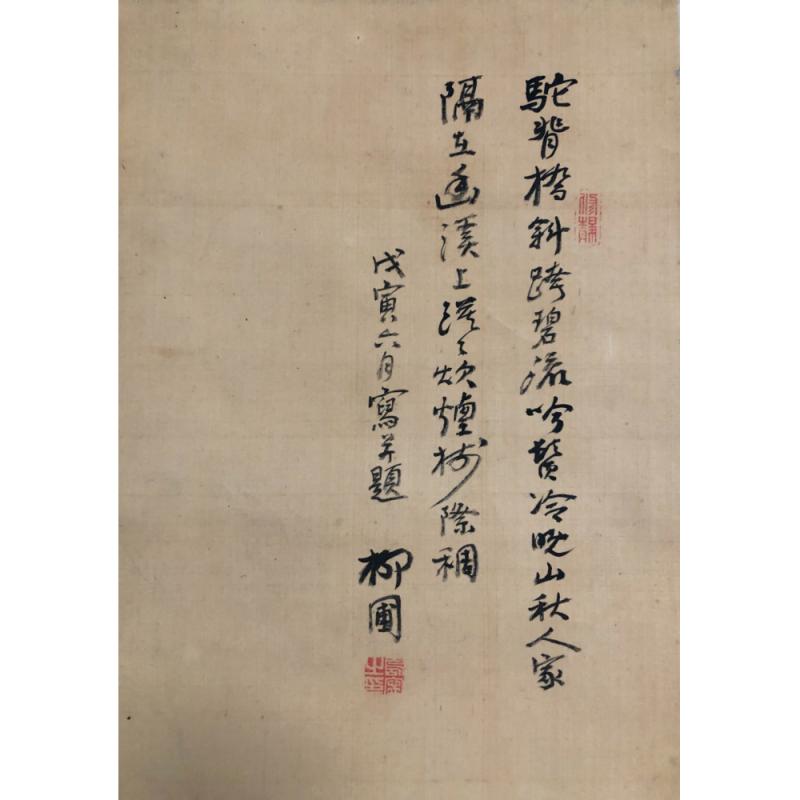 駝背橋斜跨碧流吟鬢冷晚山秋人家
隔在幽溪上漠々炊煙樹際稠
戊寅六月寫并題
柳圃